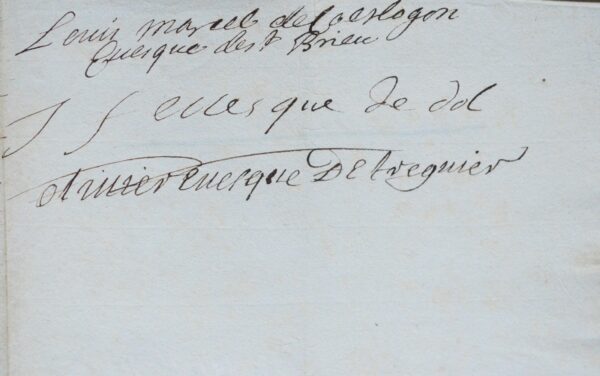 Louis marcel de Coeslogon
Euesque de st Brieu
J f euesque de dol
oliuier Euesque De treguier